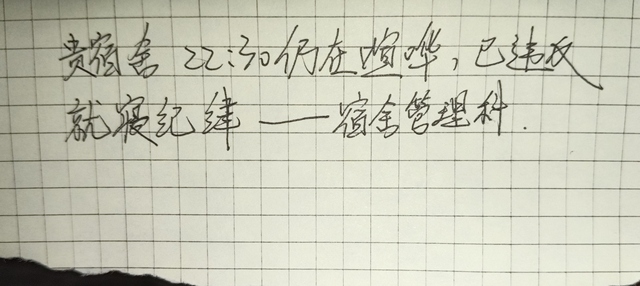 贵宿舍 22:30仍在喧哗，已违反
就寝纪律——宿舍管理科.